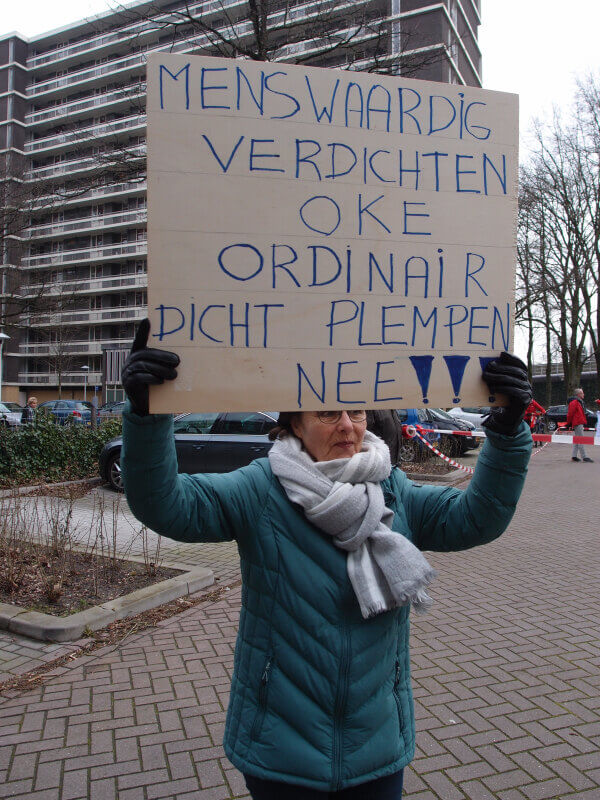 MENSWAARDIG
VERDICHTEN
OKE
ORDINAIR
DICHT PLEMPEN
NEE!!!